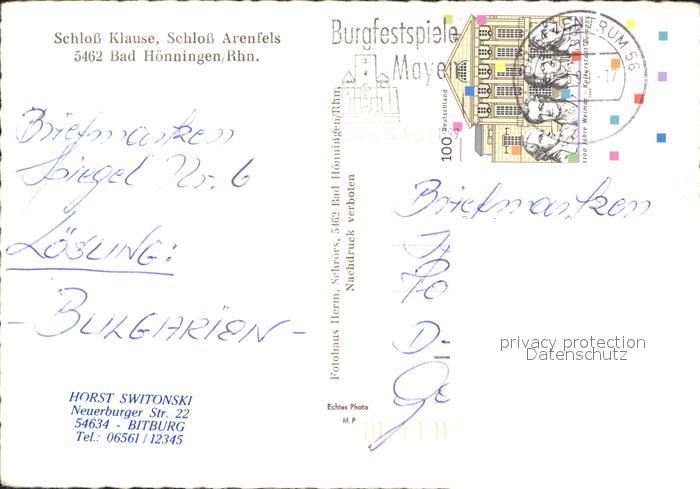 Schloß Klause, Schloß Arenfels
5462 Bad Hönningen/Rhn.
Briefmarken
Spiegel Nr. 6
LÖSUNG:
- BULGARIEN -
HORST SWITONSKI
Neuerburger Str. 22
54634 - BITBURG
Tel.: 06561 / 12345
Fotohaus Herm. Schrörs, 5462 Bad Hönningen/Rhn.
Nachdruck verboten
Echtes Photo
M P
Burgfestspiele
Mayen
100 Deutschland
1100 Jahre Weimar - Kulturstadt Europas
ZENTRUM 56
-17
Briefmarken
Po
D-
Ge
privacy protection
Datenschutz